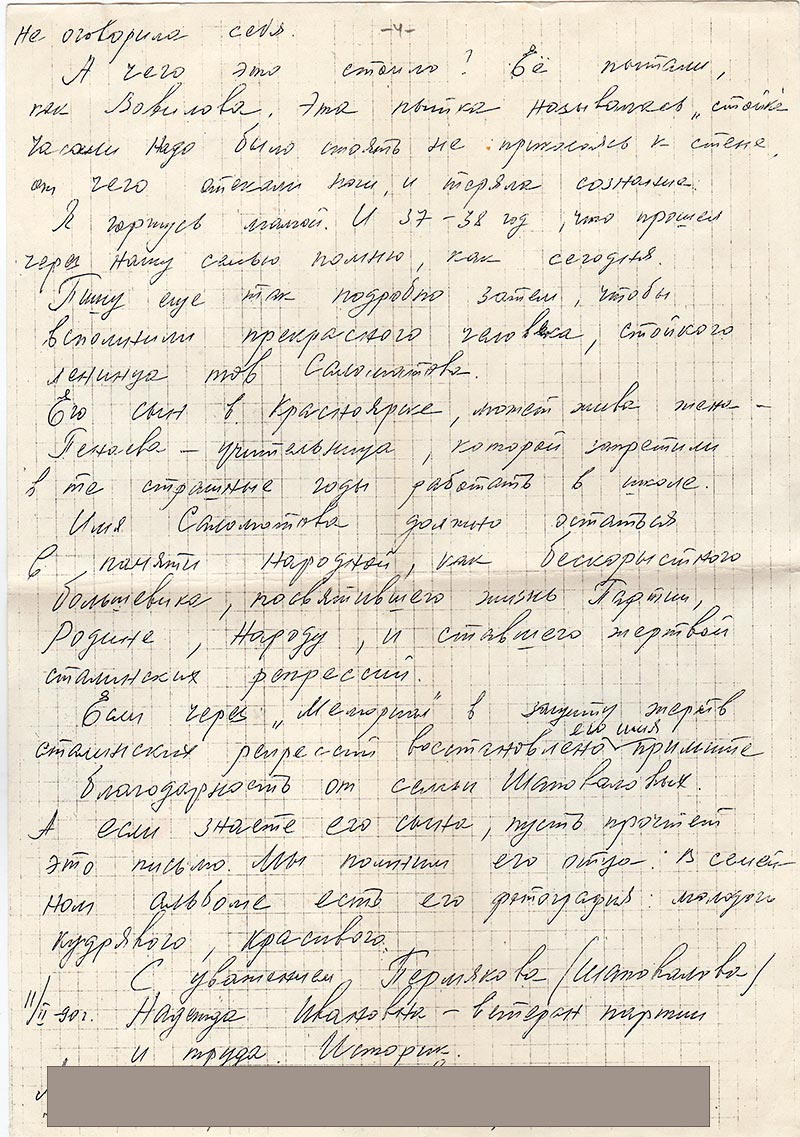 -4-
не оговорила себя.
А чего это стоило? Её пытали,
как Вавилова. Эта пытка называлась „стойка"
часами надо было стоять не прикасаясь к стене,
от чего отекали ноги, и теряла сознание.
Я горжусь мамой. И 37-38 год, что прошел
через нашу семью помню, как сегодня.
Пишу еще так подробно затем, чтобы
вспомнили прекрасного человека, стойкого
ленинца тов Саломатова.
Его сын в Красноярске, может жива жена –
– учительница, которой запретили
в те страшные годы работать в школе.
Имя Саломатова должно остаться
в памяти народной, как бескорыстного
большевика, посвятившего жизнь Партии,
Родине, Народу, и ставшего жертвой
сталинских репрессий.
Если через „Мемориал" в защиту жертв
сталинских репрессий восстановлено его имя примите
благодарность от семьи Шаповаловых.
А если знаете его сына, пусть прочтет
это письмо. Мы помним его отца. В семей-
ном альбоме есть его фотография: молодого
кудрявого, красивого.
С уважением Пермякова /Шаповалова/
11/II-90г. Надежда Ивановна – ветеран партии
и труда. Историк.